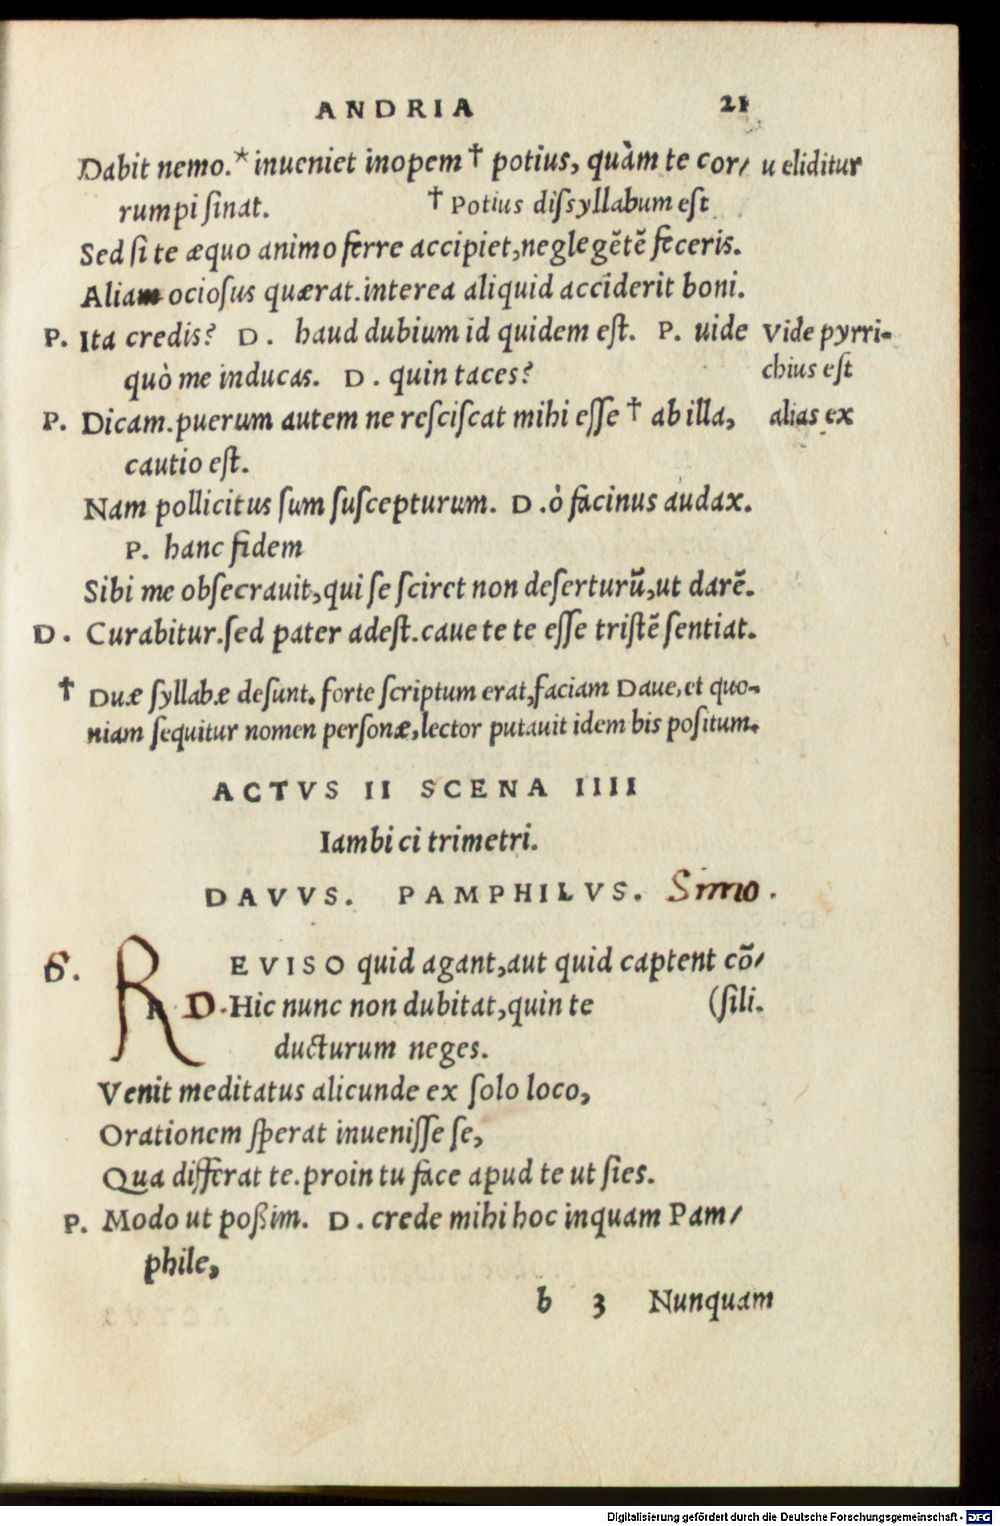 ANDRIA 21
Dabit nemo.* inueniet inopem † potius, quàm te cor/ u eliditur
rumpi ſinat. † Potius diſsyllabum eſt
Sed ſi te æquo animo ferre accipiet,neglegẽtẽ feceris.
Aliam ocioſus quærat.interea aliquid acciderit boni.
P. Ita credis? D. haud dubium id quidem eſt. P. uide Vide pyrri-
quò me inducas. D. quin taces? chius eſt
P. Dicam.puerum autem ne reſciſcat mihi eſſe † ab illa, alias ex
cautio eſt.
Nam pollicitus ſum ſuſcepturum. D.ò facinus audax.
P. hanc fidem
Sibi me obſecrauit,qui ſe ſciret non deſerturũ,ut darẽ.
D. Curabitur.ſed pater adeſt.caue te te eſſe triſtẽ ſentiat.
† Duæ ſyllabæ deſunt. forte ſcriptum erat,faciam Daue,et quo-
niam ſequitur nomen perſonæ,lector putauit idem bis poſitum.
ACTVS II SCENA IIII
Iambici trimetri.
DAVVS. PAMPHILVS. Simo.
S. R EVISO quid agant,aut quid captent cõ/
D. Hic nunc non dubitat,quin te (ſili.
ducturum neges.
Venit meditatus alicunde ex ſolo loco,
Orationem ſperat inueniſſe ſe,
Qua differat te.proin tu face apud te ut ſies.
P. Modo ut poßim. D. crede mihi hoc inquam Pam/
phile,
b 3 Nunquam
Digitalisierung gefördert durch die Deutsche Forschungsgemeinschaft - DFG